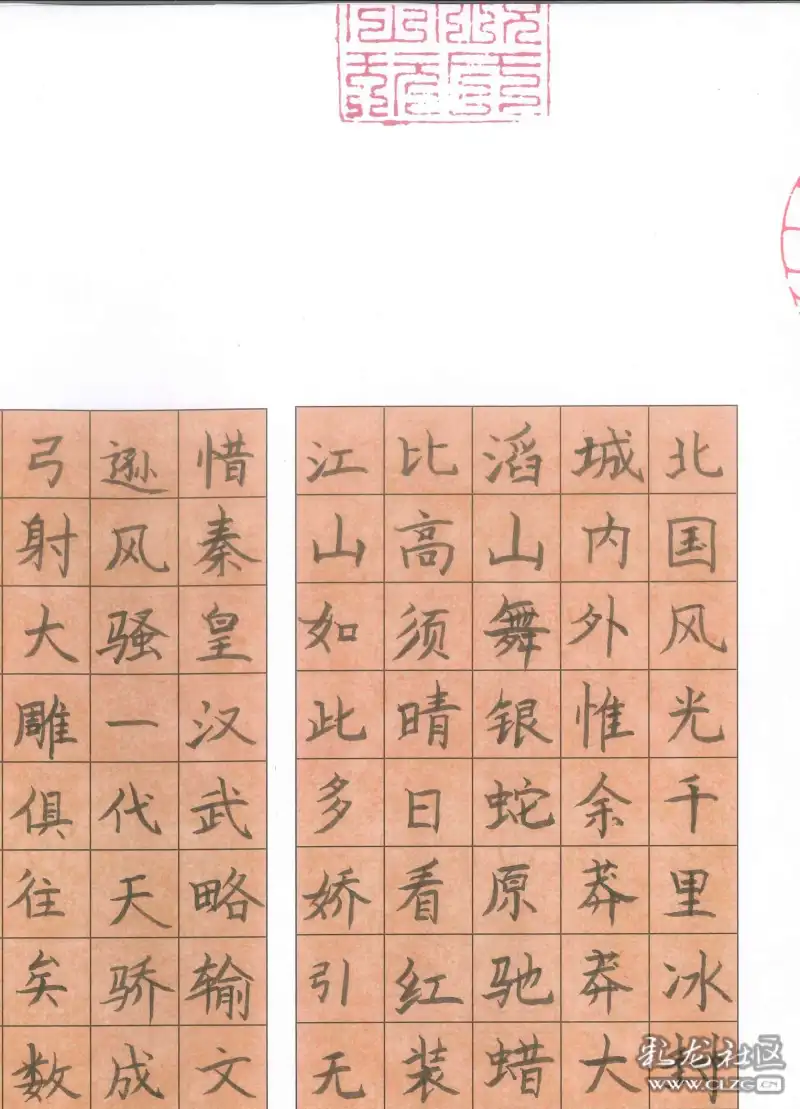 北国风光千里冰封
城内外惟余莽莽大
滔山舞银蛇原驰蜡
比高须晴日看红装
江山如此多娇引无
惜秦皇汉武略输文
逊风骚一代天骄成
弓射大雕俱往矣数
彩龙社区
WWW.CLZG.CN